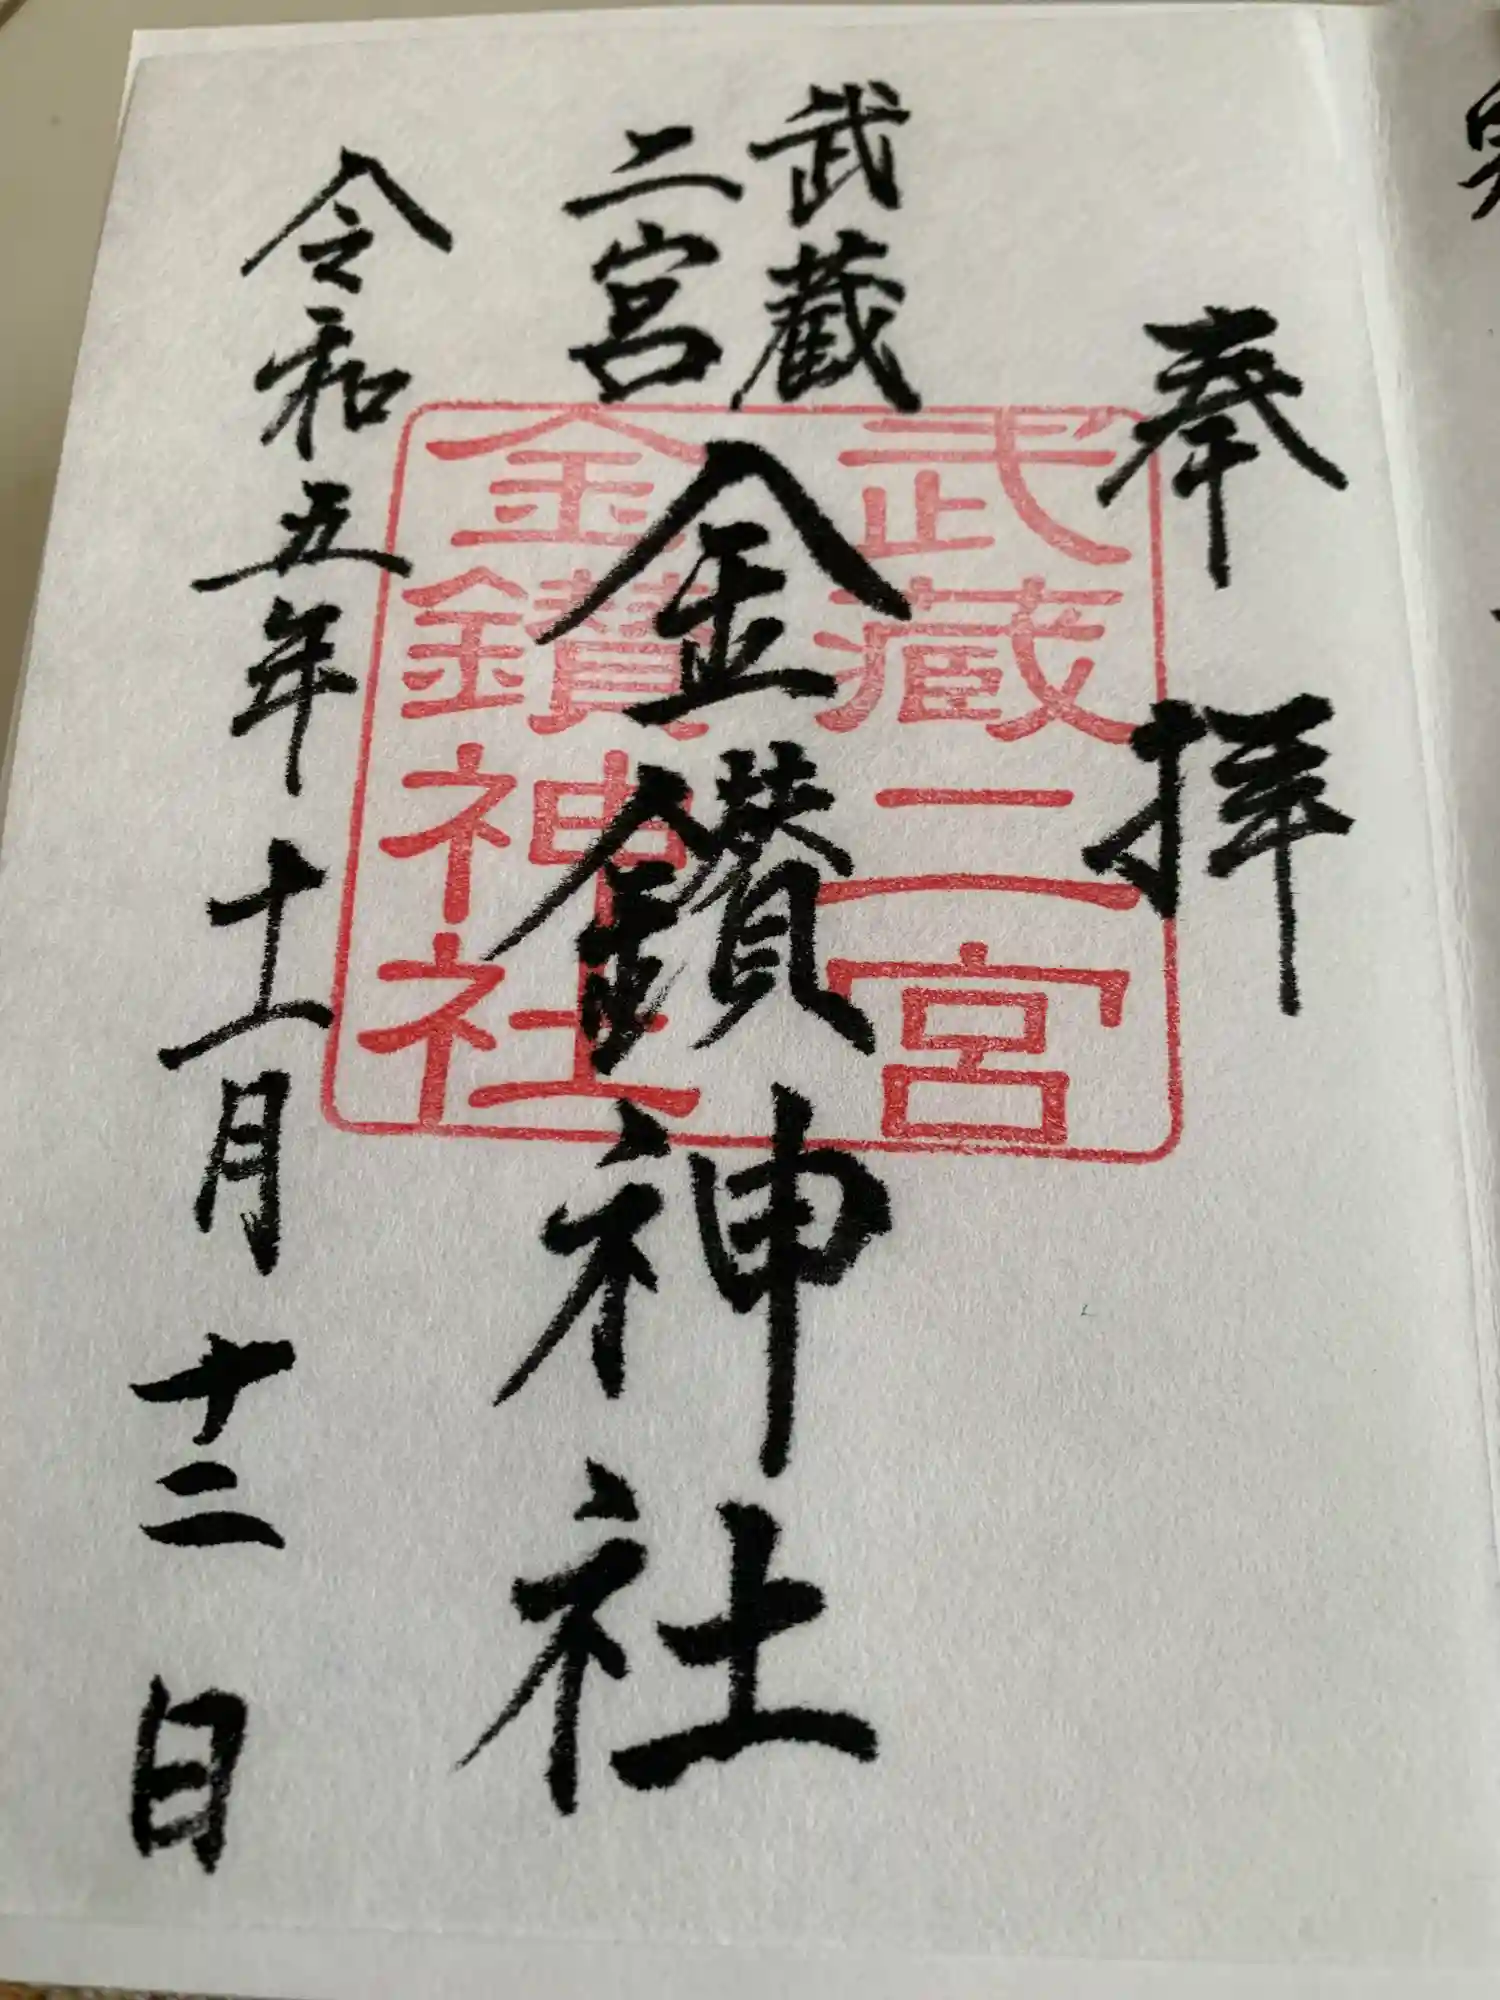 奉拝
武蔵
二宮
金鑚神社
令和五年十一月十二日
武蔵二宮
金鑚神社